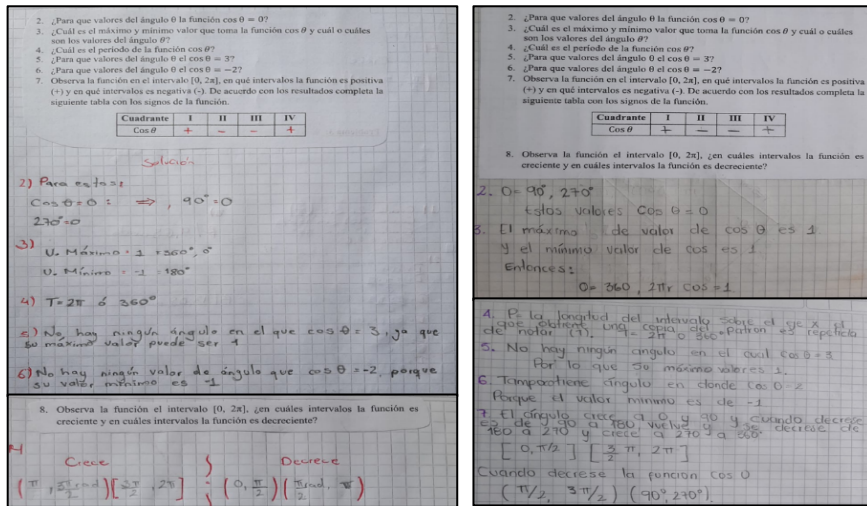 2. ¿Para que valores del ángulo θ la función cos θ = 0?
3. ¿Cuál es el máximo y mínimo valor que toma la función cos θ y cuál o cuáles
son los valores del ángulo θ?
4. ¿Cuál es el período de la función cos θ?
5. ¿Para que valores del ángulo θ el cos θ = 3?
6. ¿Para que valores del ángulo θ el cos θ = −2?
7. Observa la función en el intervalo [0, 2π], en qué intervalos la función es positiva
(+) y en qué intervalos es negativa (-). De acuerdo con los resultados completa la
siguiente tabla con los signos de la función.
Cuadrante I II III IV
Cos θ + − − +
Solución
2) Para estos:
Cos θ = 0 : ⇒ , 90° = 0
270° = 0
3)
V. Máximo = 1 = 360°, 0°
V. Mínimo = -1 = 180°
4) T = 2π ó 360°
5) No hay ningún ángulo en el que cos θ = 3, ya que
su máximo valor puede ser 1
6) No hay ningún valor de ángulo que cos θ = -2, porque
su valor mínimo es -1
8. Observa la función el intervalo [0, 2π], ¿en cuáles intervalos la función es
creciente y en cuáles intervalos la función es decreciente?
Crece Decrece
(π, 3π/2 rad) [3π/2, 2π] (0, π/2) (π/2 rad, π)
2. ¿Para que valores del ángulo θ la función cos θ = 0?
3. ¿Cuál es el máximo y mínimo valor que toma la función cos θ y cuál o cuáles
son los valores del ángulo θ?
4. ¿Cuál es el período de la función cos θ?
5. ¿Para que valores del ángulo θ el cos θ = 3?
6. ¿Para que valores del ángulo θ el cos θ = −2?
7. Observa la función en el intervalo [0, 2π], en qué intervalos la función es positiva
(+) y en qué intervalos es negativa (-). De acuerdo con los resultados completa la
siguiente tabla con los signos de la función.
Cuadrante I II III IV
Cos θ + − − +
8. Observa la función el intervalo [0, 2π], ¿en cuáles intervalos la función es
creciente y en cuáles intervalos la función es decreciente?
2. O = 90°, 270°
Estos valores Cos θ = 0
3. El máximo de valor de cos θ es 1
y el mínimo valor de cos es 1
Entonces:
O = 360, 2πr cos = 1
4. P = la longitud del intervalo sobre el eje x
que obtiene una copia del patron es repetida
de notar (T). T = 2π o 360°
5. No hay ningun angulo en el cual cos θ = 3
Por lo que su máximo valor es 1.
6. Tampoco tiene ángulo en donde Cos θ -2
Porque el valor minimo es de -1
7. El ángulo crece a 0 y 90 y cuando decrese
es de y 90 a 180, vuelve y se decrese de
180 a 270 y crece a 270 a 360°
[0, π/2] [3/2 π, 2π]
Cuando decrese la función cos θ
(π/2, 3π/2) (90°, 270°).